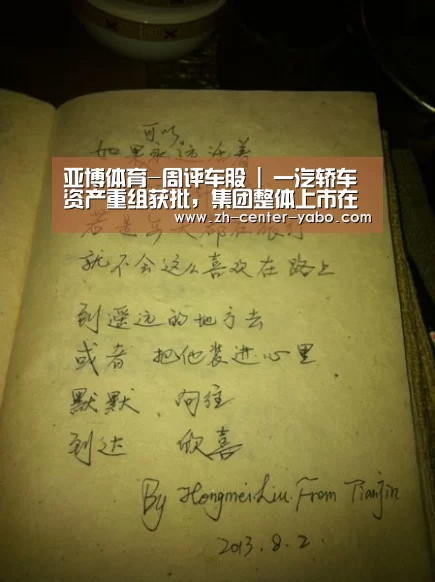 可以
如果永远活着
亚博体育-周评车股 | 一汽轿车
资产重组获批，集团整体上市在
www.zh-center-yabo.com
若是每天都在旅行
就不会这么喜欢在路上
到遥远的地方去
或者 把他装进心里
默默 向往
到达 欣喜
By Hongmei Liu. From Tianjin
2013.8.2.